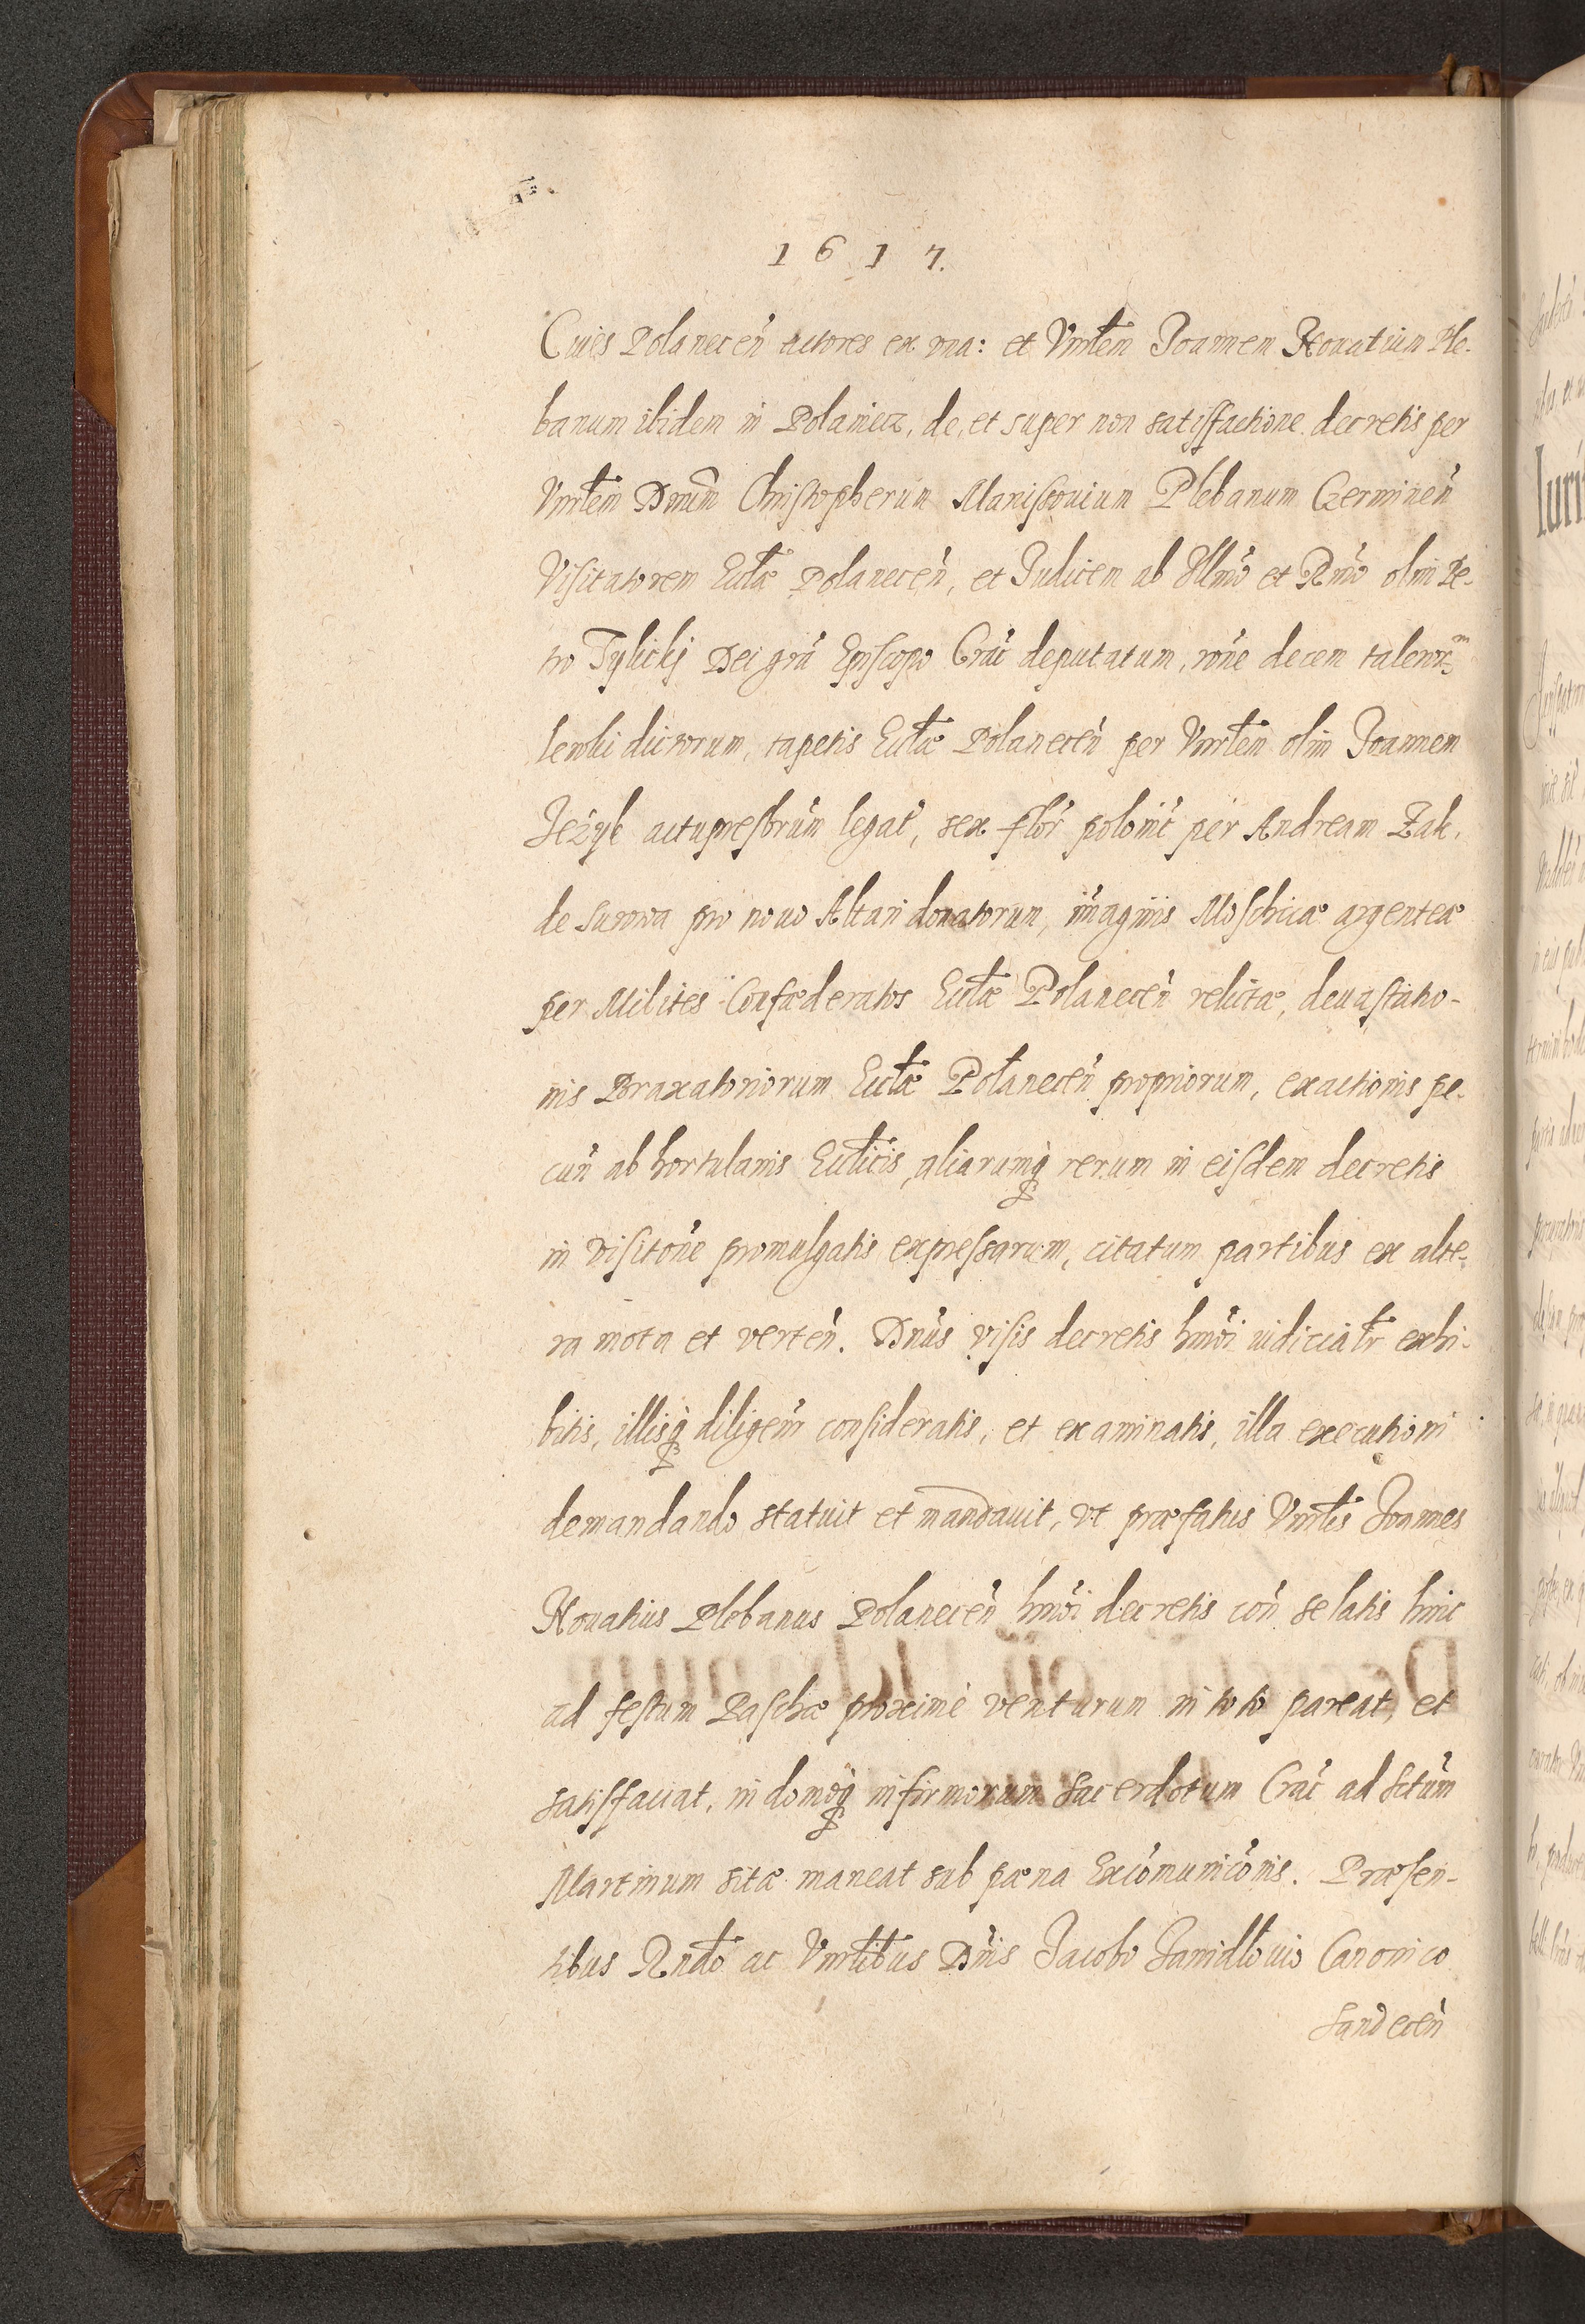 1 6 1 7.
Ciues Polanecen̄ actores ex vna: et Vnrłem Joannem Nouatium Ple-
banum ibidem in Polaniecz, de, et super non satisfactione decretis per
Vnrłem Dnum Christopherum Maniszouium Plebanum Czerminen̄
Visitatorem Ecclæ Polanecen̄, et Judicem ab Illmo et Rmo olim Pe-
tro Tylicki Dei gra Episcopo Crac deputatum, rone decem
dictorum, tapetis Ecclæ Polanecen̄ per Vnrłem olim Joannem
Jeżyk actupresbrum legat, sex flor polonic per Andream Zak,
de Surowa pro nouo Altari donatorum, imaginis Moschicæ argenteæ
per Milites Confœderatos Ecclæ Polanecen̄ relictæ, deuastatio-
nis Braxatoriorum Ecclæ Polanecen̄ propriorum, exactionis pe-
cun ab hortulanis Ecclicis, aliarumq rerum in eisdem decretis
in visitone promulgatis expressarum, citatum partibus ex alte-
ra mota et verten̄. Dnus visis decretis hmoi iudicialr exhi-
bitis, illisq diligenr consideratis, et examinatis, illa executioni
demandando statuit et mandauit, vt præfatus Vnrłis Joannes
Nouatius Plebanus Polanecen̄ hmoi decretis con se latis hinc
ad festum Paschæ proximè venturum in toto pareat, et
satisfaciat, in domoq infirmorum Sacerdotum Crac ad Sctum
Martinum sitæ maneat sub pœna Excōmuniconis. Præsen-
tibus Rndo ac Vnrłibus Dnis Jacobo Janidłouio Canonico
Sandecen̄